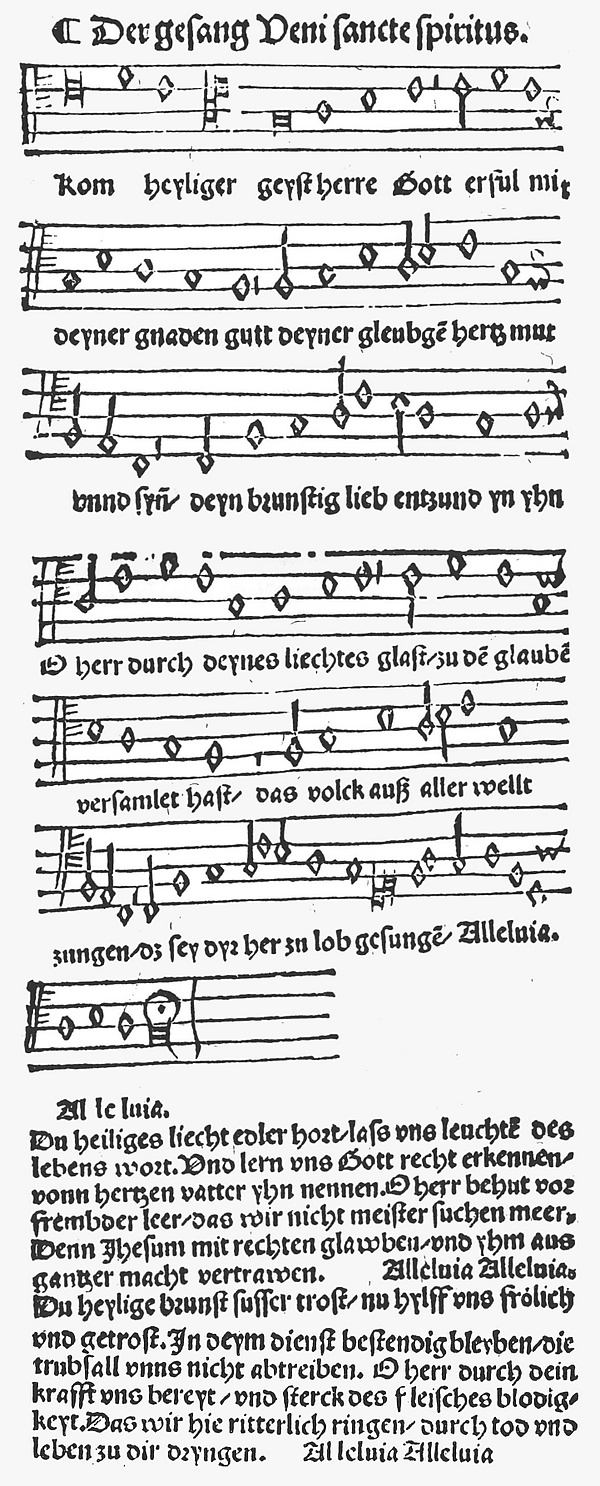 ¶ Der gesang Veni sancte spiritus.
Kom heyliger geyst herre Gott erful mit
deyner gnaden gutt deyner gleubgē hertz mut
vnnd syñ/ deyn brunstig lieb entzund yn yhn
O herr durch deynes liechtes glast/zu dē glaubē
versamlet hast/ das volck auß aller wellt
zungen/dz sey dyr her zu lob gesungē/ Alleluia.
Al le luia.
Du heiliges liecht edler hort/lass vns leuchtē des
lebens wort.Vnd lern vns Gott recht erkennen/
vonn hertzen vatter yhn nennen.O herr behut vor
frembder leer/das wir nicht meister suchen meer,
Denn Jhesum mit rechten glawben/vnd yhm aus
gantzer macht vertrawen. Alleluia Alleluia.
Du heylige brunst susser trost/nu hylff vns frölich
vnd getrost.In deym dienst bestendig bleyben/die
trubsall vnns nicht abtreiben. O herr durch dein
krafft vns bereyt/vnd sterck des fleisches blodig/
keyt.Das wir hie ritterlich ringen/durch tod vnd
leben zu dir dryngen. Alleluia Alleluia